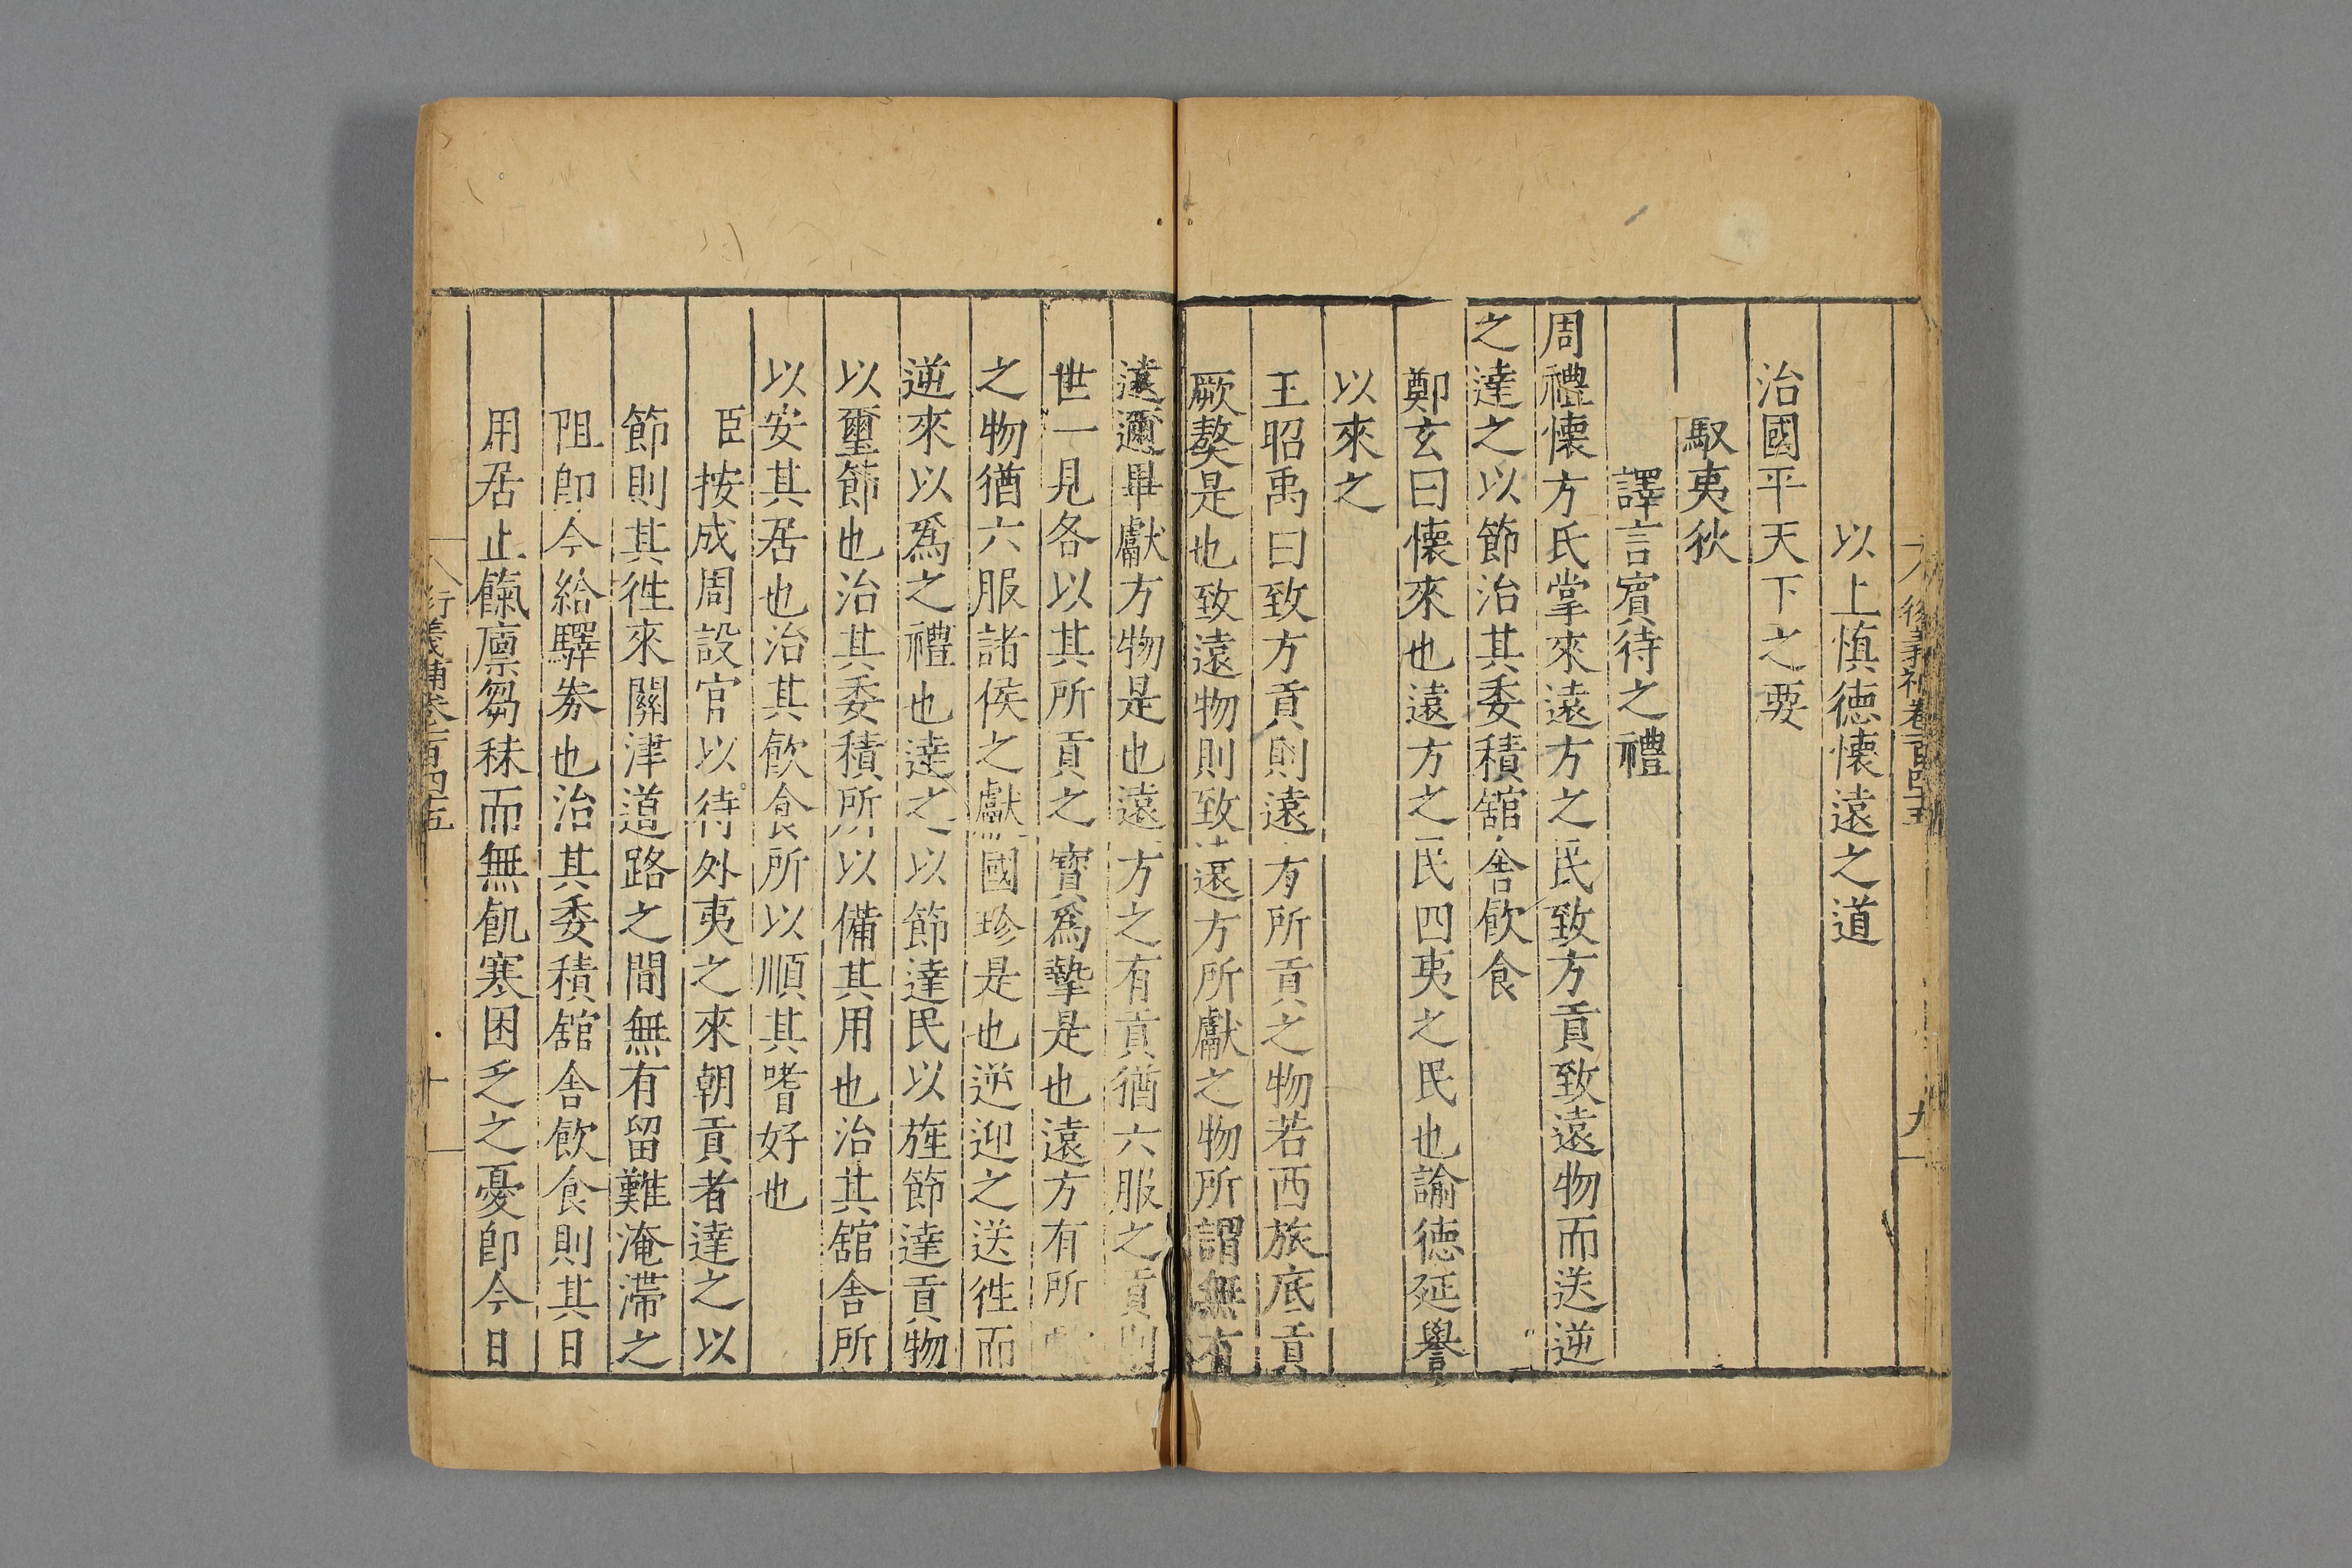 衍義補卷一百四十五
九
以上慎德懷遠之道
治國平天下之要
馭夷狄
譯言賓待之禮
周禮懷方氏掌來遠方之民致方貢致遠物而送逆
之達之以節治其委積舘舍飲食
鄭玄曰懷來也遠方之民四夷之民也諭德延譽
以來之
王昭禹曰致方貢則遠方所貢之物若西旅底貢
厥獒是也致遠物則致遠方所獻之物所謂無有
遠邇畢獻方物是也遠方之有貢猶六服之貢則
世一見各以其所貢之寶爲摯是也遠方有所
之物猶六服諸侯之獻國珍是也逆迎之送徃而
逆來以爲之禮也達之以節達民以旌節達貢物
以璽節也治其委積所以備其用也治其舘舍所
以安其居也治其飲食所以順其嗜好也
臣按成周設官以待外夷之來朝貢者達之以
節則其徃來關津道路之間無有留難淹滯之
阻卽今給驛券也治其委積舘舍飲食則其日
用居止餼廪芻秣而無飢寒困乏之憂卽今日
衍義補卷一百四十五
十